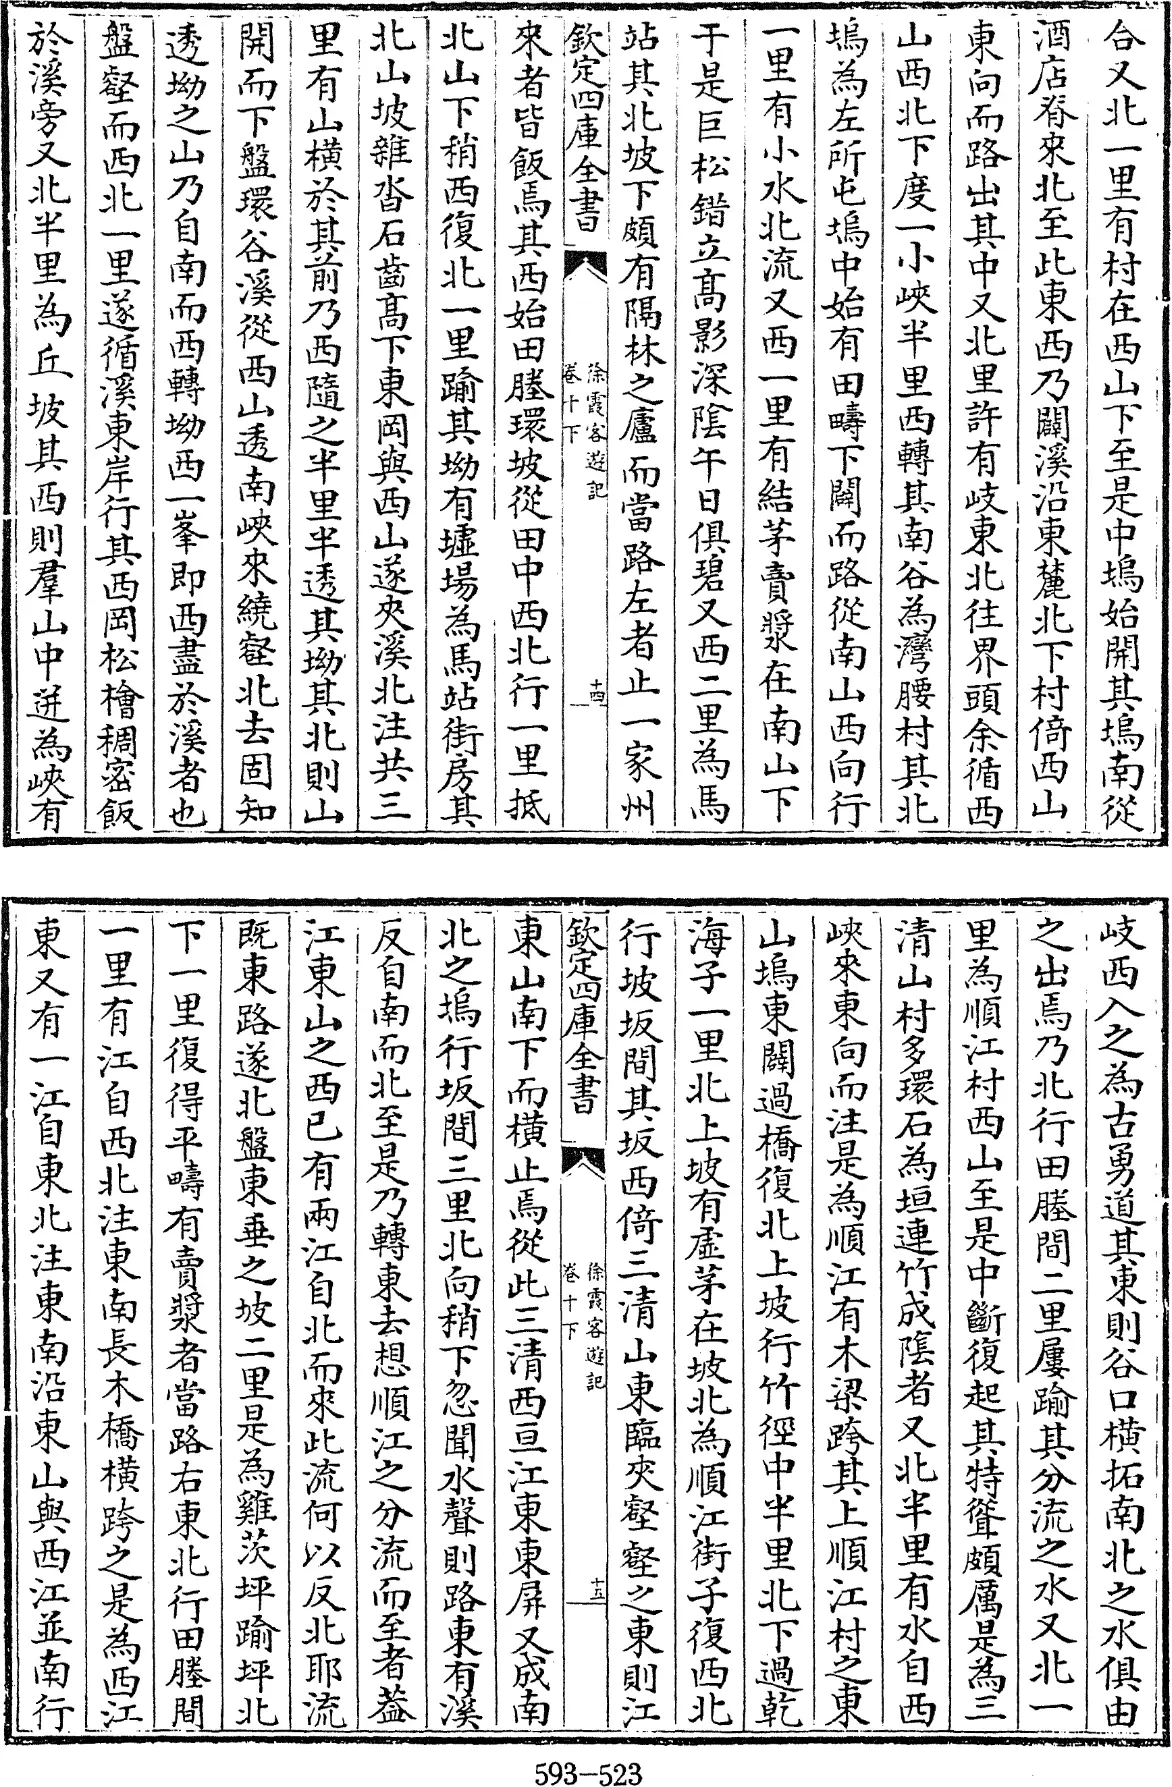 合又北一里有村在西山下至是中塢始開其塢南從
酒店脊來北至此東西乃闢溪沿東麓北下村倚西山
東向而路出其中又北里許有岐東北往界頭余循西
山西北下度一小峽半里西轉其南谷為灣腰村其北
塢為左所屯塢中始有田疇下闢而路從南山西向行
一里有小水北流又西一里有結茅賣漿在南山下
于是巨松錯立高影深陰午日俱碧又西二里為馬
站其北坡下頗有隔林之廬而當路左者止一家州
欽定四庫全書
徐霞客遊記
卷十下
十四
來者皆飯焉其西始田塍環坡從田中西北行一里抵
北山下稍西復北一里踰其坳有墟場為馬站街房其
北山坡雜沓石齒高下東岡與西山遂夾溪北注共三
里有山橫於其前乃西隨之半里半透其坳其北則山
開而下盤環谷溪從西山透南峽來繞壑北去固知
透坳之山乃自南而西轉坳西一峯即西盡於溪者也
盤壑而西北一里遂循溪東岸行其西岡松檜稠密飯
於溪旁又北半里為丘坡其西則羣山中迸為峽有
岐西入之為古勇道其東則谷口橫拓南北之水俱由
之出焉乃北行田塍間二里屢踰其分流之水又北一
里為順江村西山至是中斷復起其特聳頗厲是為三
清山村多環石為垣連竹成陰者又北半里有水自西
峽來東向而注是為順江有木梁跨其上順江村之東
山塢東闢過橋復北上坡行竹徑中半里北下過乾
海子一里北上坡有虛茅在坡北為順江街子復西北
行坡坂間其坂西倚三清山東臨夾壑壑之東則江
欽定四庫全書
徐霞客遊記
卷十下
十五
東山南下而橫止焉從此三清西亘江東東屏又成南
北之塢行坂間三里北向稍下忽聞水聲則路東有溪
反自南而北至是乃轉東去想順江之分流而至者葢
江東山之西已有兩江自北而來此流何以反北耶流
既東路遂北盤東垂之坡二里是為雞茨坪踰坪北
下一里復得平疇有賣漿者當路右東北行田塍間
一里有江自西北注東南長木橋橫跨之是為西江
東又有一江自東北注東南沿東山與西江並南行
593-523